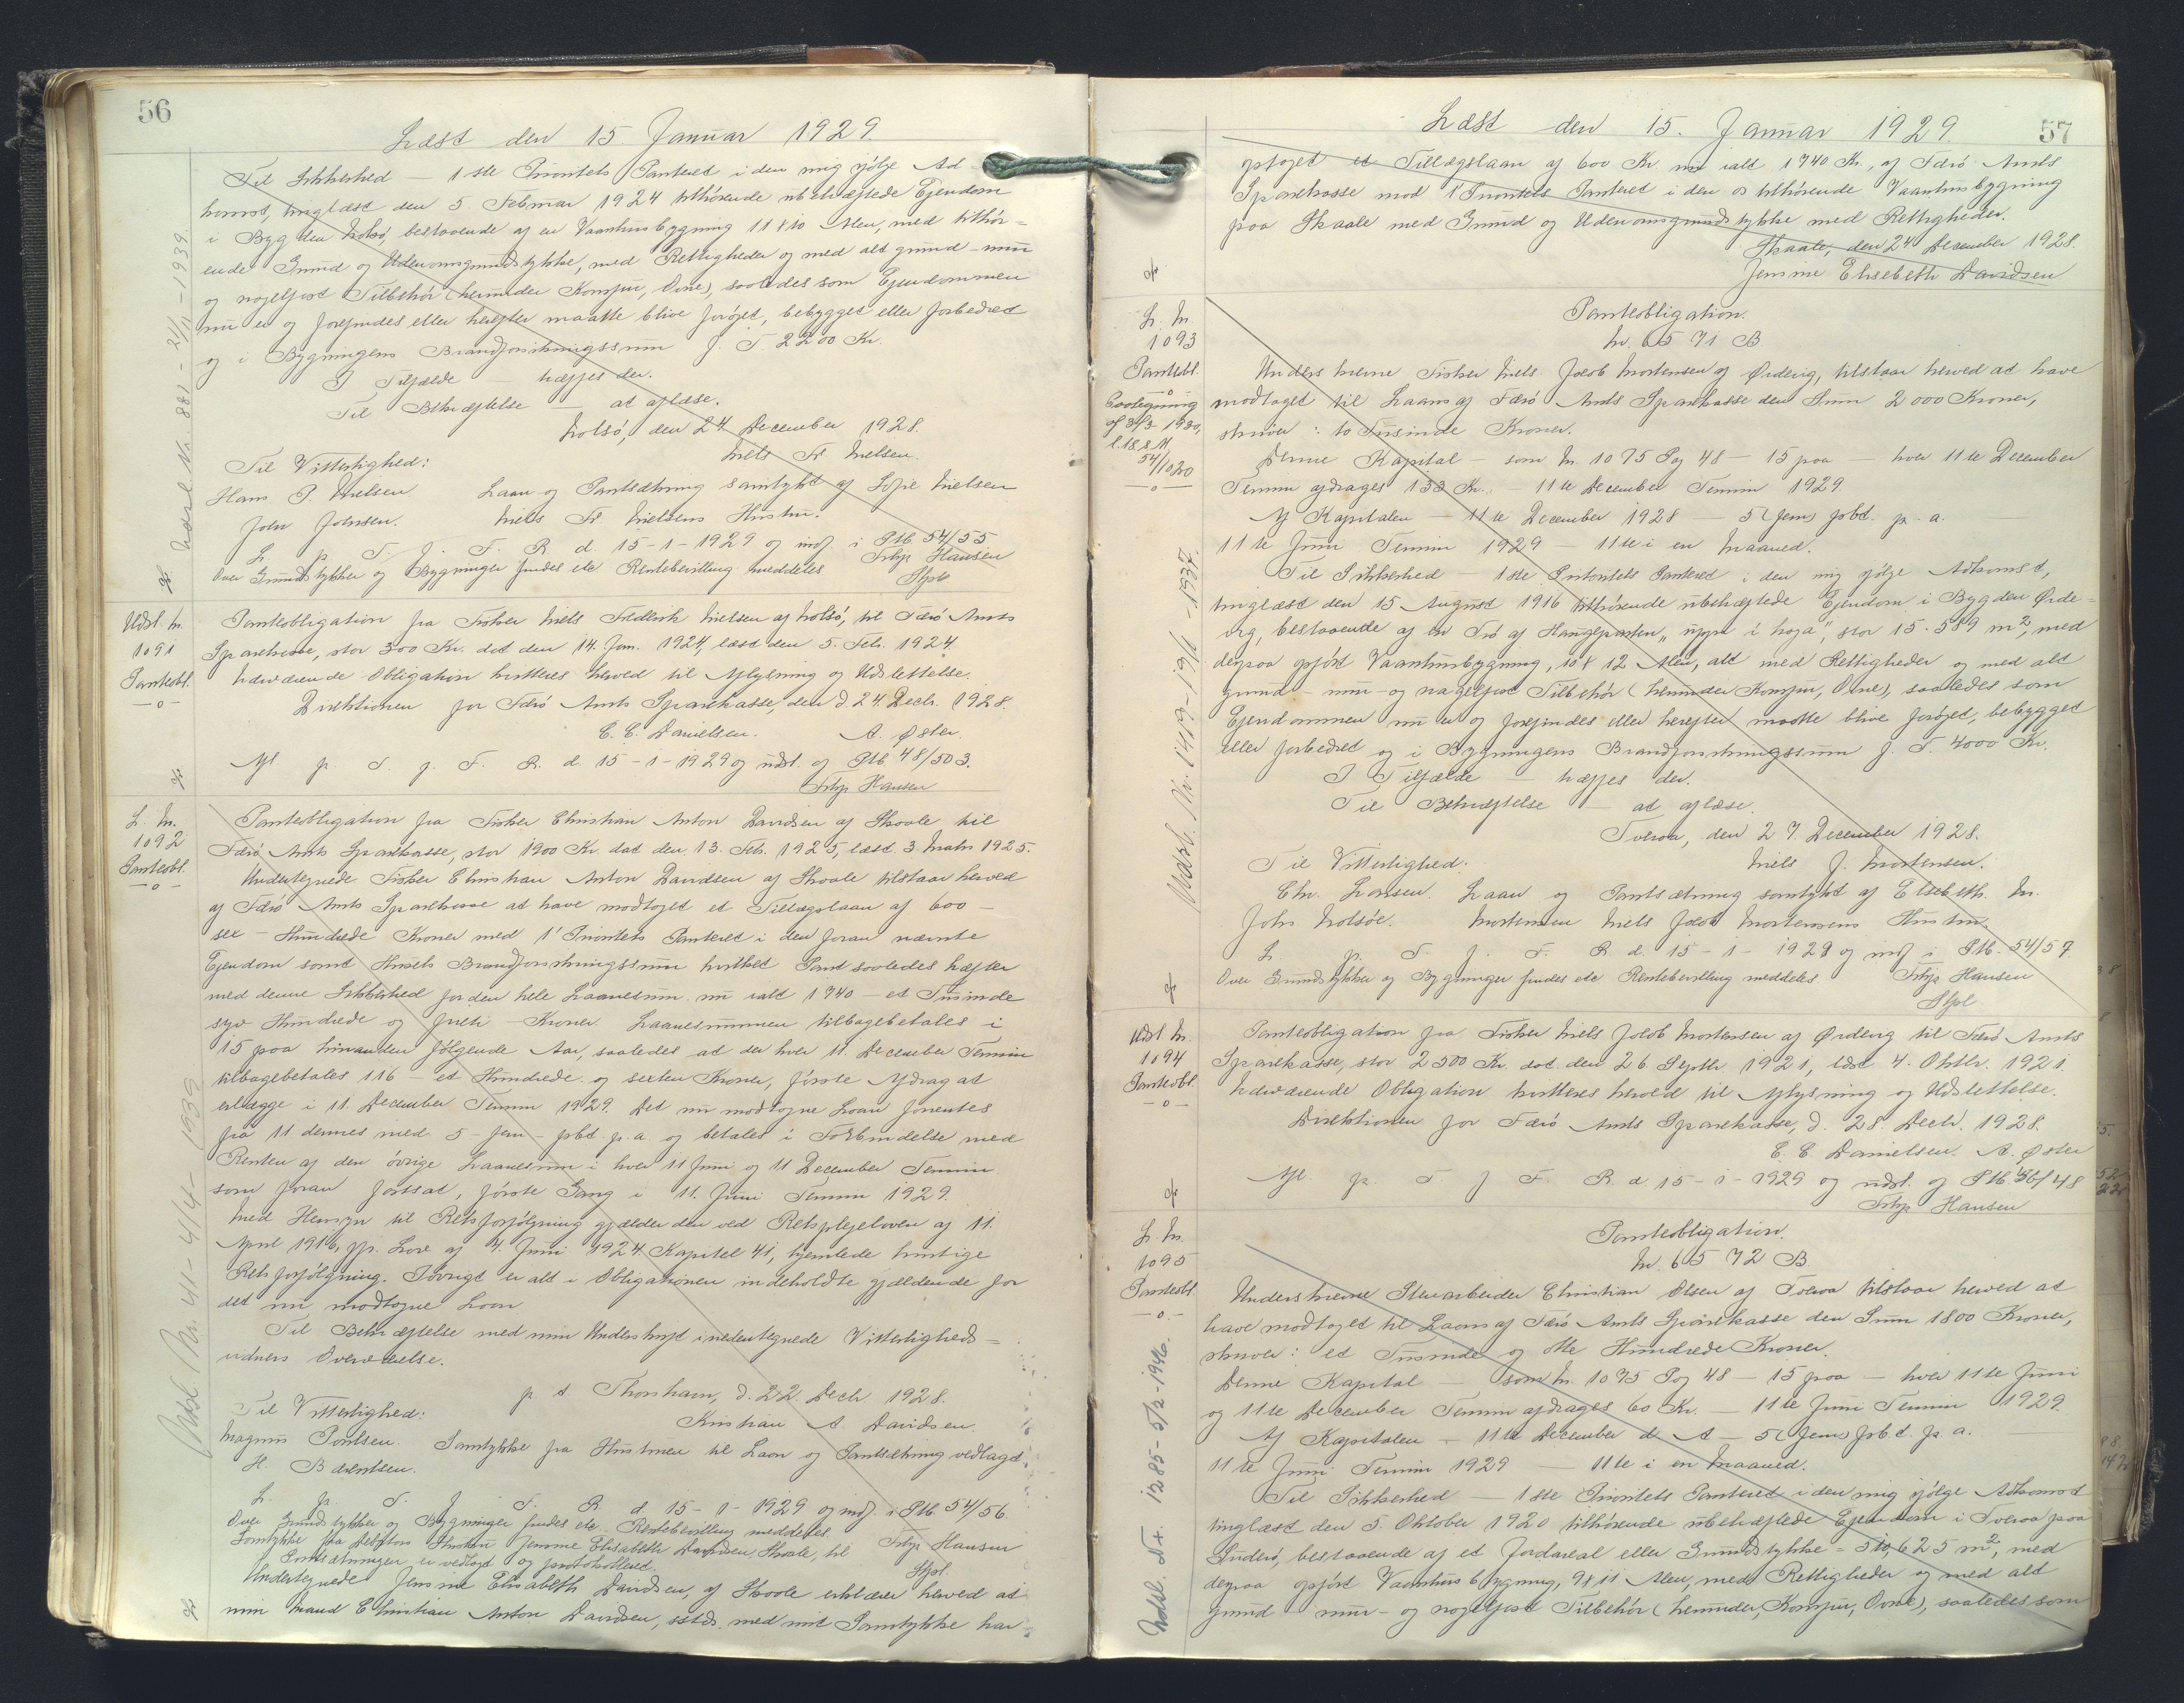 56
Læst den 15 Januar 1929
Til Sikkerhed — 1ste Prioritets Panteret i den mig ifølge Ad-
komst, tinglæst den 5. Februar 1924 tilhørende ubehæftede Ejendom
i Bygden Nolsø, bestaaende af en Vaaninhusbygning 11 x 10 Alen, med tilhør=
ende Grund og Udenomsgrundstykke, med Rettigheder og med alt grund- mur
og nagelfast Tilbehør (herunder Komfur, Ovne), saaledes som Ejendommen
nu er og forefindes eller herefter maatte blive forøget, bebygget eller forbedret
og i Bygningens Brandforsikringssum f. T 2200 Kr.
I Tilfælde — hæftes der.
Til Bekræftelse — at aflæse.
Nolsø, den 24 December 1928.
Niels Fr. Nielsen.
Til Vitterlighed:
Hans P. Nielsen. Laan og Pantsætning samtykt af Sofie Nielsen
John Johnsen. Niels Fr. Nielsens Hustru.
L. p. T. f. F. R. d 15-1-1929 og indf. i Ptb. 54/55
Over Grundstykker og Bygninger findes etc Rentebevilling meddeles Filip Hansen
Stfol
Udsl. Nr. 882 - 21/11 - 1939.
Udsl. N.
1091
Panteobl.
—o—
Panteobligation fra Fisker Niels Frederik Nielsen af Nolsø, til Færø Amts
Sparekasse, stor 500 Kr. dat den 14. Jan. 1924, læst den 5. Feb. 1924.
Nærværende Obligation kvitteres herved til Aflysning og Udslettelse.
Direktionen for Færø Amts Sparekasse, den d. 24. Decb. 1928.
E. E. Danielsen. A. Øster.
Afl p. T. f. F. R. d. 15-1-1929 og udsl. af Ptb 48/503.
Filip Hansen
L. N.
1092
Panteobl.
—o—
Panteobligation fra Fisker Christian Anton Davidsen af Skaale til
Færø Amts Sparekasse, stor 1900 Kr. dat den 13. Feb. 1925, læst 3 Marts 1925.
Undertegnede Fisker Christian Anton Davidsen af Skaale tilstaar herved
af Færø Amts Sparekasse at have modtaget et Tillægslaan af 600 —
sex — Hundrede Kroner med 1' Prioritets Panteret i den foran nævnte
Ejendom samt Husets Brandforsikringssum hvilket Pant saaledes hæfter
med denne Sikkerhed for den hele Laanesum nu ialt 1740 — et Tusinde
syv Hundrede og firti — Kroner. Laanesummen tilbagebetales i
15 paa hinanden følgende Aar, saaledes at der hver 11. December Termin
tilbagebetales 116 — et Hundrede og sexten Kroner, første Afdrag at
erlægge i 11. December Termin 1929. Det nu modtagne Laan forrentes
fra 11 dennes med 5 - fem - pct. p. a. og betales i Forbindelse med
Renten af den øvrige Laanesum i hver 11 Juni og 11 December Termin
som foran fastsat, første Gang i 11. Juni Termin 1929.
Med Hensyn til Retsforfølgning gjælder den ved Retsplejeloven af 11.
April 1916, jfr. Lov af 4. Juni 1924 Kapitel 41, hjemlede hurtige
Retsforfølgning. Iøvrigt er alt i Obligationen indeholdte gjældende for
det nu modtagne Laan
Til Bekræftelse med min Underskrift i nedentegnede Vitterligheds=
vidners Overværelse.
p. t. Thorshavn, d. 22 Decb. 1928.
Kristian A. Davidsen.
Til Vitterlighed:
Magnus Poulsen. Samtykke fra Hustruen til Laan og Pantsætning vedlagt.
H. Bærentsen.
L. p. T. f. F. R. d 15-1-1929 og indf. i Ptb. 54/56.
Over Grundstykker og Bygninger findes etc. Rentebevilling meddeles.
Samtykke fra Debitors Hustru Jensine Elisabeth Davidsen, Skaale, til Filip Hansen
Pantsætningen er vedlagt og protokolleret. Stfol.
Undertegnede Jensine Elisabeth Davidsen, af Skaale erklærer herved at
min Mand Christian Anton Davidsen, sstds. med mit Samtykke har
Udsl. Nr. 41 - 4/4 - 1939
57
Læst den 15. Januar 1929.
optaget et Tillægslaan af 600 Kr. nu ialt 1740 Kr., af Færø Amts
Sparekasse mod 1 Prioritets Panteret i den os tilhørende Vaaninhusbygning
paa Skaale med Grund og Udenomsgrundstykke med Rettigheder.
Skaale, den 24 December 1928.
Jensine Elisebeth Davidsen
L. N.
1093
Panteobl.
—o—
54/1020
—o—
Panteobligation.
Nr. 6571 B.
Underskrevne Fisker Niels Jacob Mortensen af Ørdevig, tilstaar herved at have
modtaget til Laans af Færø Amts Sparekasse den Sum 2000 Kroner,
skriver: to Tusinde Kroner.
Denne Kapital — som N. 1075 Pag 48 — 15 paa — hver 11te December
Termin afdrages 133 Kr. — 11te December Termin 1929.
Af Kapitalen — 11te December 1928 — 5 (fem) pCt. p. a.
11te Juni Termin 1929 — 11te i en Maaned.
Til Sikkerhed — 1ste Prioritets Panteret i den mig ifølge Adkomst,
tinglæst den 15 August 1916 tilhørende ubehæftede Ejendom i Bygden Ørde-
vig, bestaaende af en Trø af Hauglparten „uppi i haga", stor 15.589 m², med
derpaa opført Vaaninhusbygning, 10 x 12 Alen, alt med Rettigheder og med alt
grund- mur- og nagelfast Tilbehør (herunder Komfur, Ovne), saaledes som
Ejendommen nu er og forefindes eller herefter maatte blive forøget, bebygget
eller forbedret og i Bygningens Brandforsikringssum f. T. 4000 Kr.
I Tilfælde — hæftes der.
Til Bekræftelse — at aflæse.
Tveraa, den 27. December 1928.
Til Vitterlighed: Niels J. Mortensen.
Chr. Larsen. Laan og Pantsætning samtykt af Elsebeth M.
Johs Nolsøe. Mortensen Niels Jacob Mortensens Hustru.
L. p. T. f. F. R d. 15-1-1929 og indf i Ptb. 54/57
Over Grundstykker og Bygninger findes etc Rentebevilling meddeles. Filip Hansen
Stfol
Udsl. Nr. 1419 - 19/11 - 1937.
Udsl. N.
1094
Panteobl.
—o—
Panteobligation fra Fisker Niels Jacob Mortensen af Ørdevig til Færø Amts
Sparekasse, stor 2500 Kr. dat. den 26 Septbr. 1921, læst 4. Oktbr. 1921.
Nærværende Obligation kvitteres herved til Aflysning og Udslettelse.
Direktionen for Færø Amts Sparekasse, d. 28. Decb. 1928.
E. E. Danielsen. A. Øster
Afl. p. T. f. F. R. d 15-1-1929 og udsl. af Ptb 46/48
Filip Hansen
L. N.
1095
Panteobl.
—o—
Panteobligation.
Nr. 6572 B.
Underskrevne Stenarbeider Christian Olsen af Tveraa tilstaar herved at
have modtaget til Laans af Færø Amts Sparekasse den Sum 1800 Kroner,
skriver: et Tusinde og otte Hundrede Kroner.
Denne Kapital — som N. 1075 Pag 48 — 15 paa — hver 11te Juni
og 11te December Termin afdrages 60 Kr. — 11te Juni Termin 1929.
Af Kapitalen — 11te December d. A — 5 (fem) pCt. p. a.
11te Juni Termin 1929 — 11te i en Maaned.
Til Sikkerhed — 1ste Prioritets Panteret i den mig ifølge Adkomst
tinglæst den 5. Oktober 1920 tilhørende ubehæftede Ejendom i Tveraa paa
Suderø, bestaaende af et Jordareal eller Grundstykke = 510,625 m², med
derpaa opført Vaaninhusbygning, 9 x 11 Alen, med Rettigheder og med alt
grund mur- og nagelfast Tilbehør (herunder, Komfur, Ovne), saaledes som
Udsl. Nr. 1285 - 5/2 - 1946.